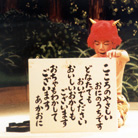 こころのやさしい
おにのうちです
どなたでも
おいでください
おいしいおかしも
ございます
おちゃもわかして
ございます
あかおに